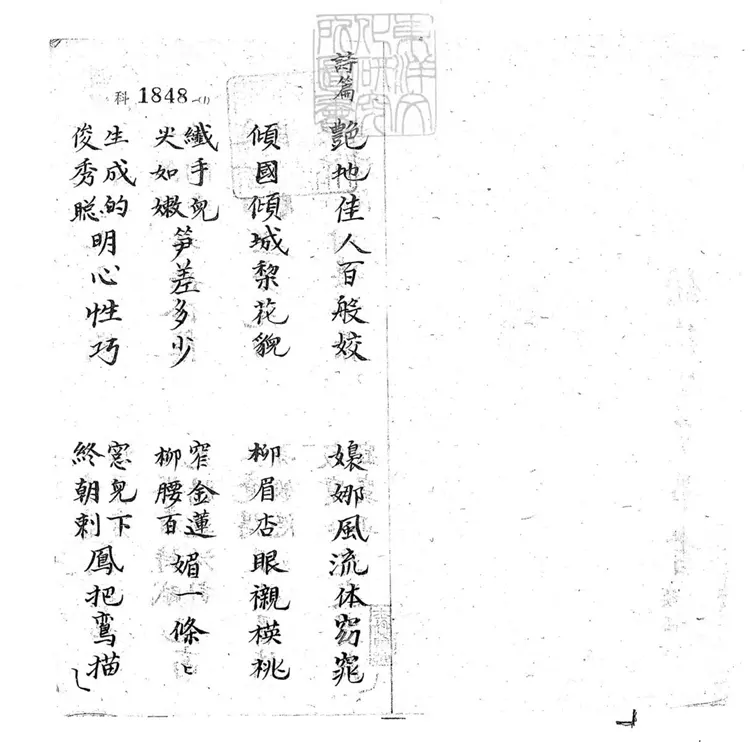 詩篇
艷地佳人百般姣
嬝娜風流体窈窕
傾國傾城梨花貌
柳眉杏眼襯樱桃
纖手兒
尖如嫩笋差多少
窄金蓮
柳腰百媚一條々
生成的
俊秀聪明心性巧
窓兒下
終朝刺鳳把鸞描
科 1848-(1)
東洋文化研究所圖書